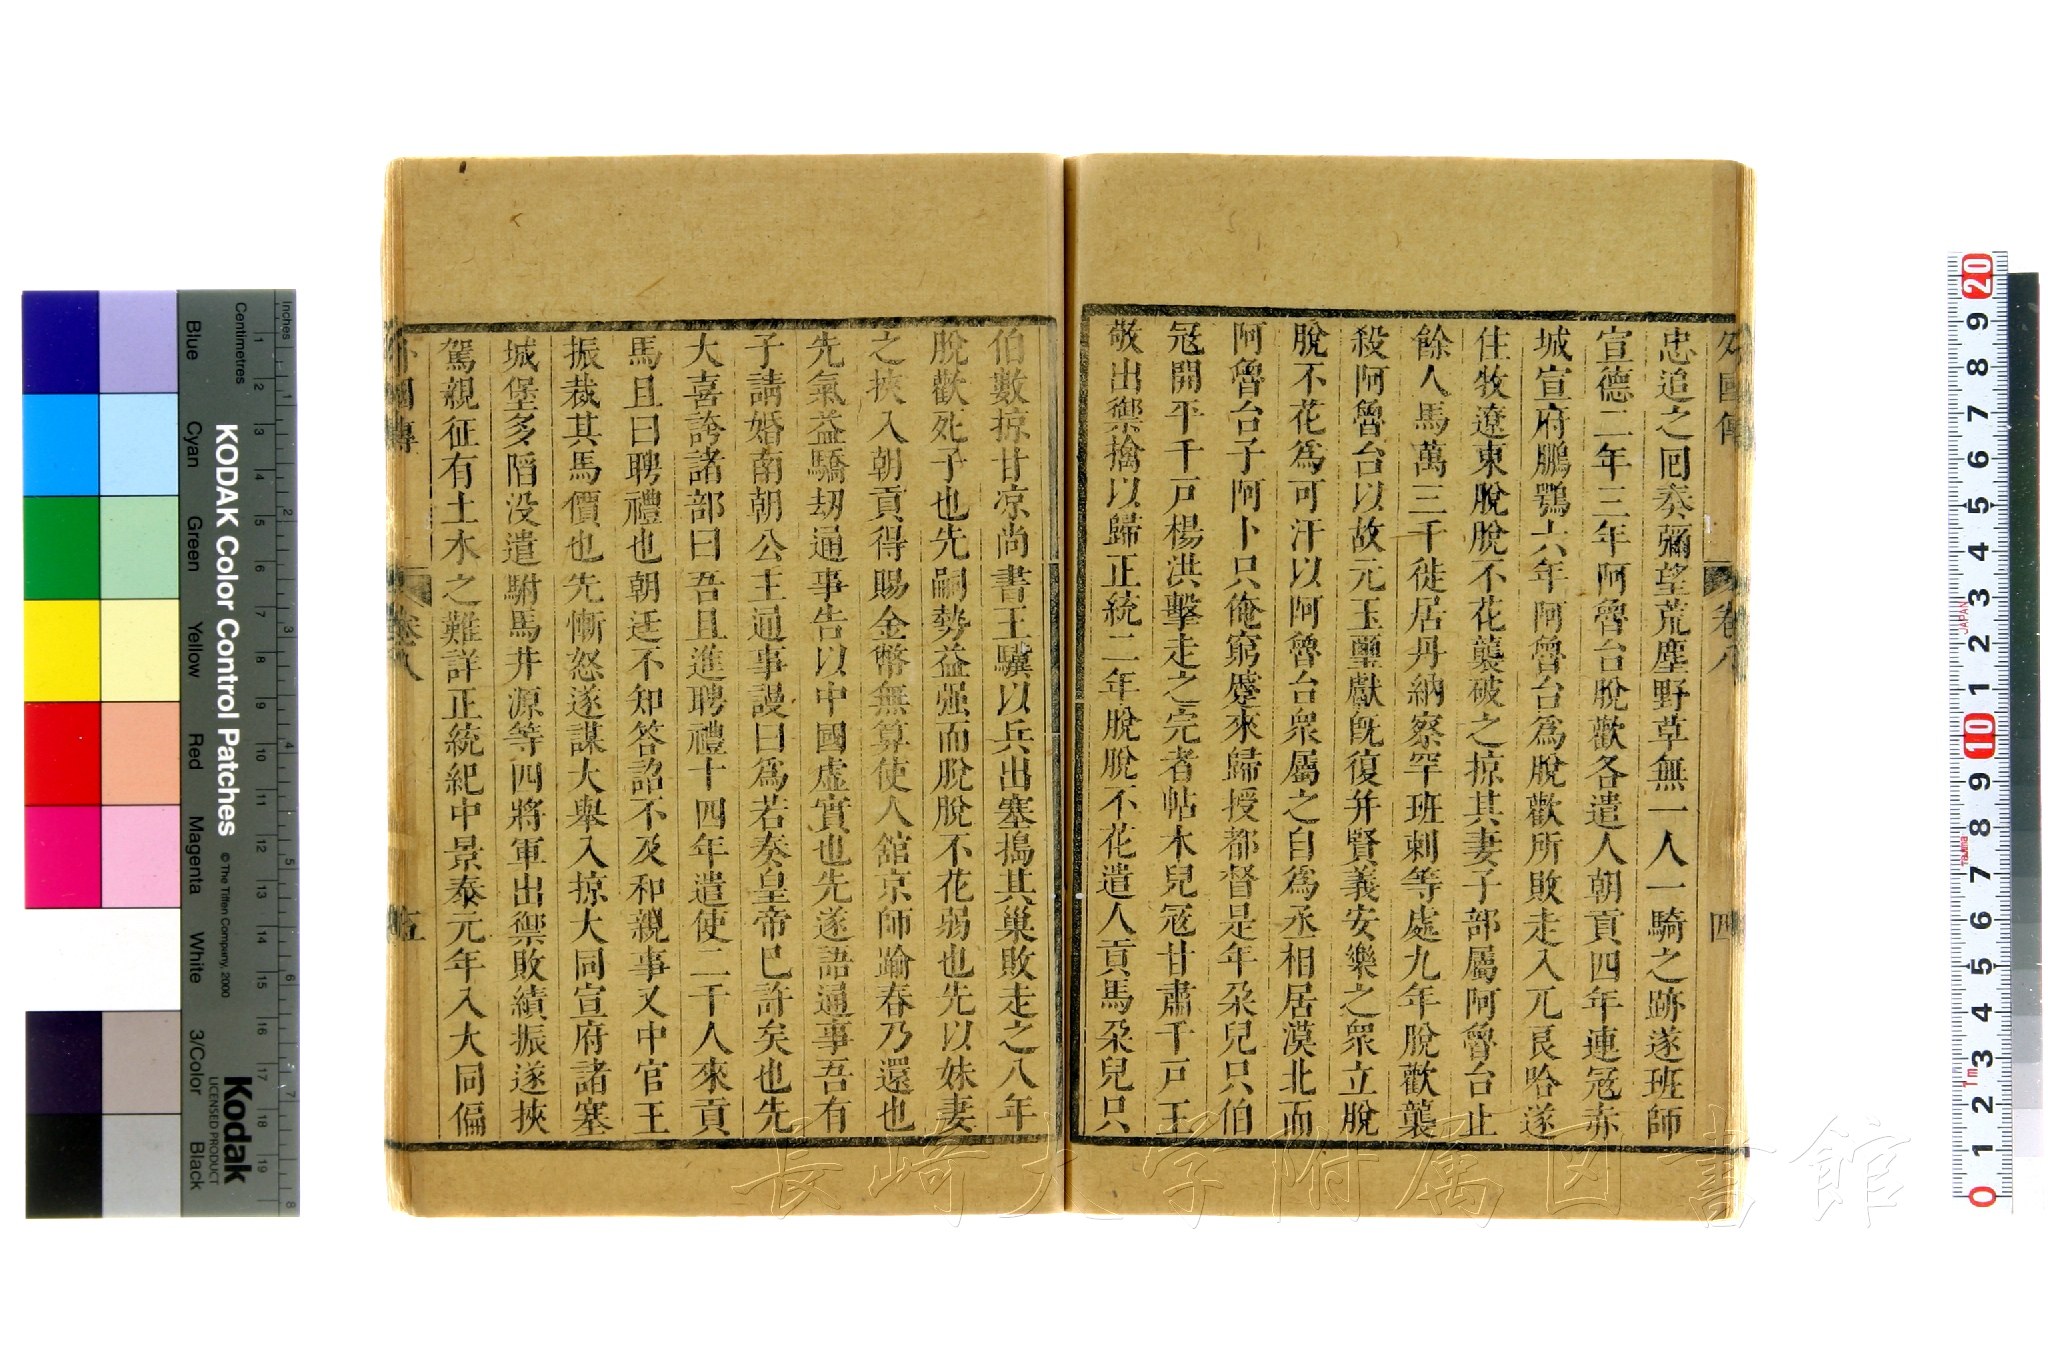 外國傳 卷八 四
忠追之回奏彌望荒塵野草無一人一騎之跡遂班師
宣德二年三年阿魯台脫歡各遣人朝貢四年連寇赤
城宣府鵰鶚六年阿魯台爲脫歡所敗走入兀良哈遂
住牧遼東脫脫不花襲破之掠其妻子部屬阿魯台止
餘人馬萬三千徙居丹納察罕班剌等處九年脫歡襲
殺阿魯台以故元玉璽獻旣復并賢義安樂之眾立脫
脫不花爲可汗以阿魯台眾屬之自爲丞相居漠北而
阿魯台子阿卜只俺窮蹙來歸授都督是年朶兒只伯
寇開平千戸楊洪擊走之完者帖木兒寇甘肅千戸王
敬出禦擒以歸正統二年脫脫不花遣人貢馬朶兒只
伯數掠甘凉尚書王驥以兵出塞搗其巢敗走之八年
脫歡死子也先嗣勢益强而脫脫不花弱也先以妹妻
之挾入朝貢得賜金幣無算使人舘京師踰春乃還也
先氣益驕刼通事告以中國虚實也先遂語通事吾有
子請婚南朝公主通事謾曰爲若奏皇帝巳許矣也先
大喜誇諸部曰吾且進聘禮十四年遣使二千人來貢
馬且曰聘禮也朝廷不知答詔不及和親事又中官王
振裁其馬價也先慚怒遂謀大舉入掠大同宣府諸塞
城堡多陷没遣駙馬井源等四將軍出禦敗績振遂挾
駕親征有土木之難詳正統紀中景泰元年入大同偏
外國傳 卷八 五
長崎大学附属図書館
KODAK Color Control Patches
© The Tiffen Company, 2000
Kodak
LICENSED PRODUCT
Inches
Centimetres
Blue Cyan Green Yellow Red Magenta White 3/Color Black
1 2 3 4 5 6 7 8 9 10 11 12 13 14 15 16 17 18 19
1 2 3 4 5 6 7 8
20 9 8 7 6 5 4 3 2 1 10 9 8 7 6 5 4 3 2 1 0
JAPAN
Tajima
1m